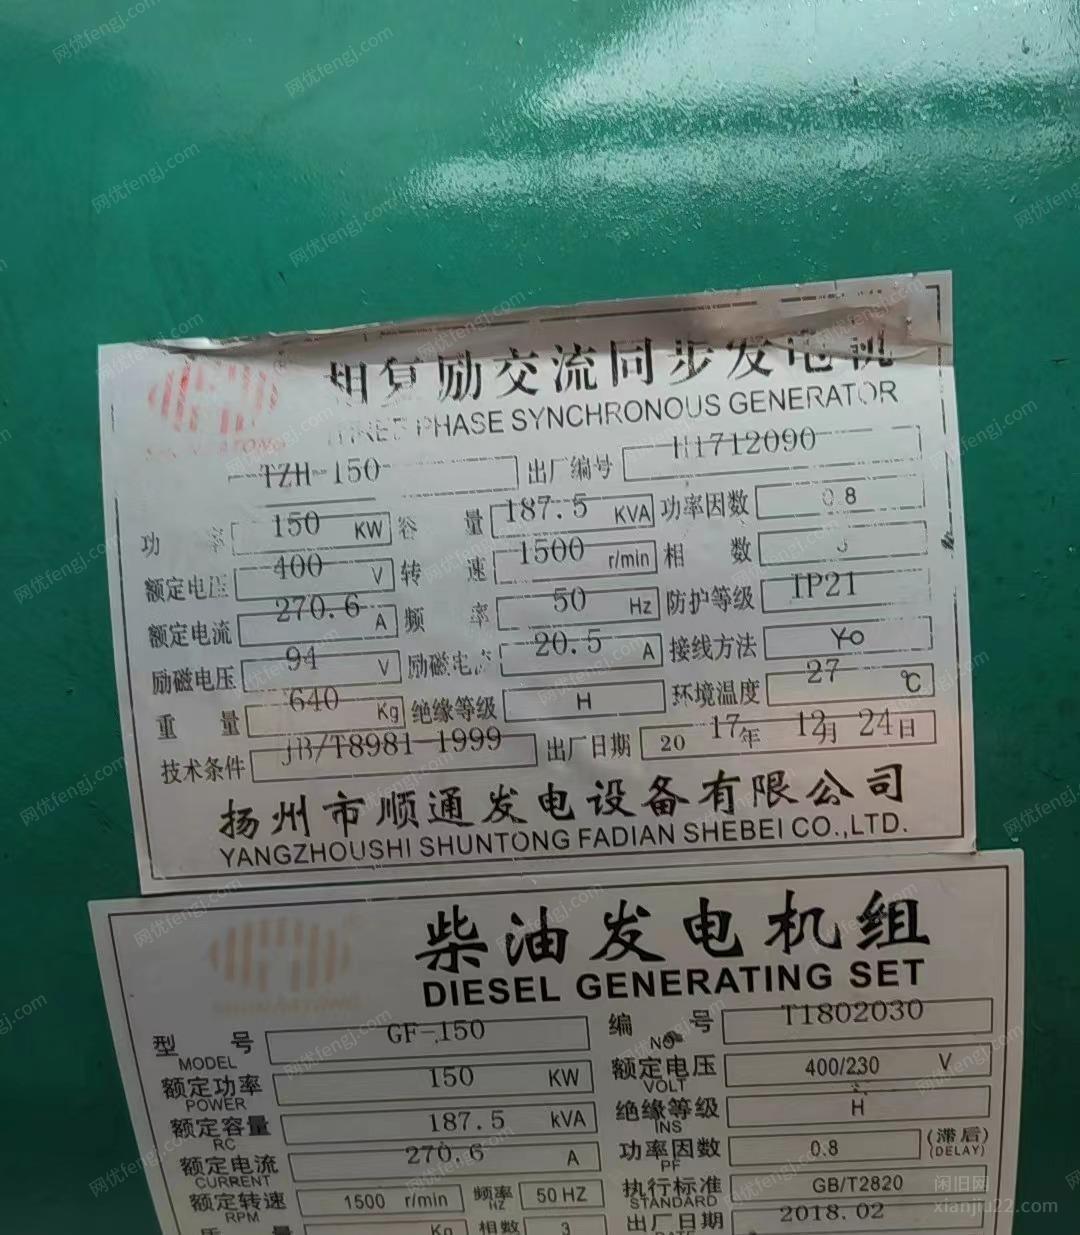 相复励交流同步发电机
THREE PHASE SYNCHRONOUS GENERATOR
TZH-150 出厂编号 H1712090
功 率 150 KW 容 量 187.5 KVA 功率因数 0.8
额定电压 400 V 转 速 1500 r/min 相 数 3
额定电流 270.6 A 频 率 50 Hz 防护等级 IP21
励磁电压 94 V 励磁电流 20.5 A 接线方法 Yo
重 量 640 Kg 绝缘等级 H 环境温度 27 ℃
技术条件 JB/T8981-1999 出厂日期 20 17年 12月 24日
扬州市顺通发电设备有限公司
YANGZHOUSHI SHUNTONG FADIAN SHEBEI CO.,LTD.
柴油发电机组
DIESEL GENERATING SET
型 号 GF-150 编 号 T1802030
MODEL NO
额定功率 150 KW 额定电压 400/230 V
POWER VOLT
额定容量 187.5 kVA 绝缘等级 H
RC INS
额定电流 270.6 A 功率因数 0.8 (滞后)
CURRENT PF (DELAY)
额定转速 1500 r/min 频率 50 HZ 执行标准 GB/T2820
RPM HZ STANDARD
Kg 相数 3 出厂日期 2018.02
网优fengj.com
闲旧网
xianjiu22.com